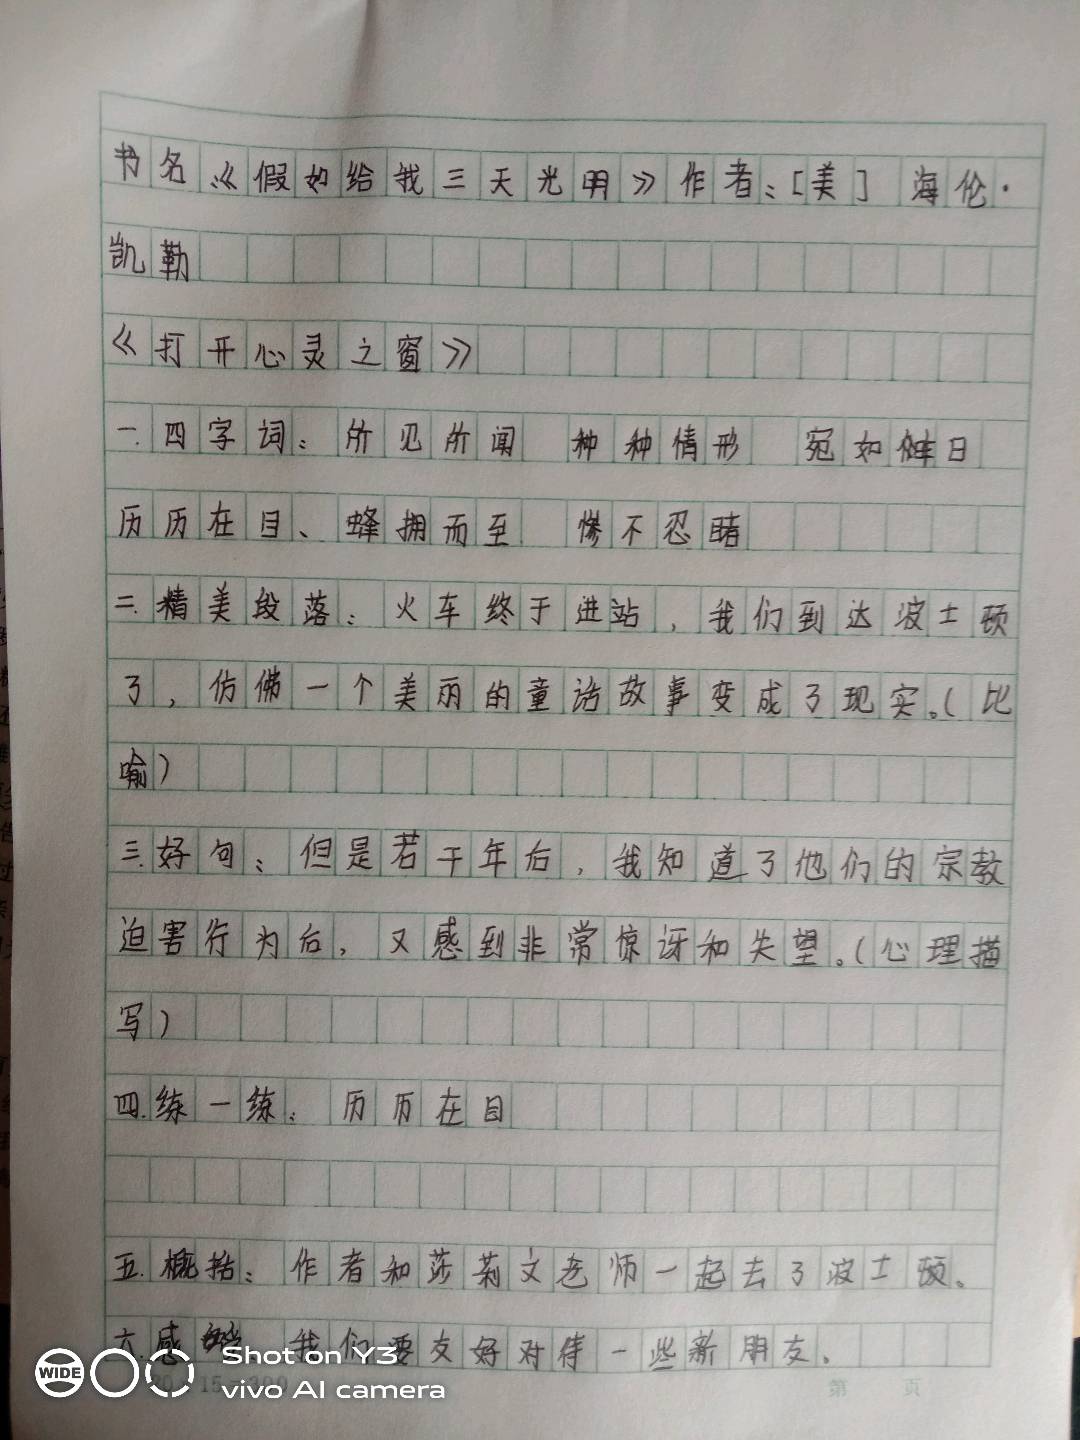 书名:《假如给我三天光明》作者:[美] 海伦·
凯勒
《打开心灵之窗》
一.四字词: 所见所闻 种种情形 宛如昨日
历历在目、蜂拥而至 惨不忍睹
二.精美段落: 火车终于进站,我们到达波士顿
了,仿佛一个美丽的童话故事变成了现实。(比
喻)
三.好句: 但是若干年后,我知道了他们的宗教
迫害行为后,又感到非常惊讶和失望。(心理描
写)
四.练一练: 历历在目
五.概括: 作者和莎莉文老师一起去了波士顿。
六.感 我们要友好对待一些新朋友。
Shot on Y3
vivo AI camera
WIDE
20×15=300
第 页